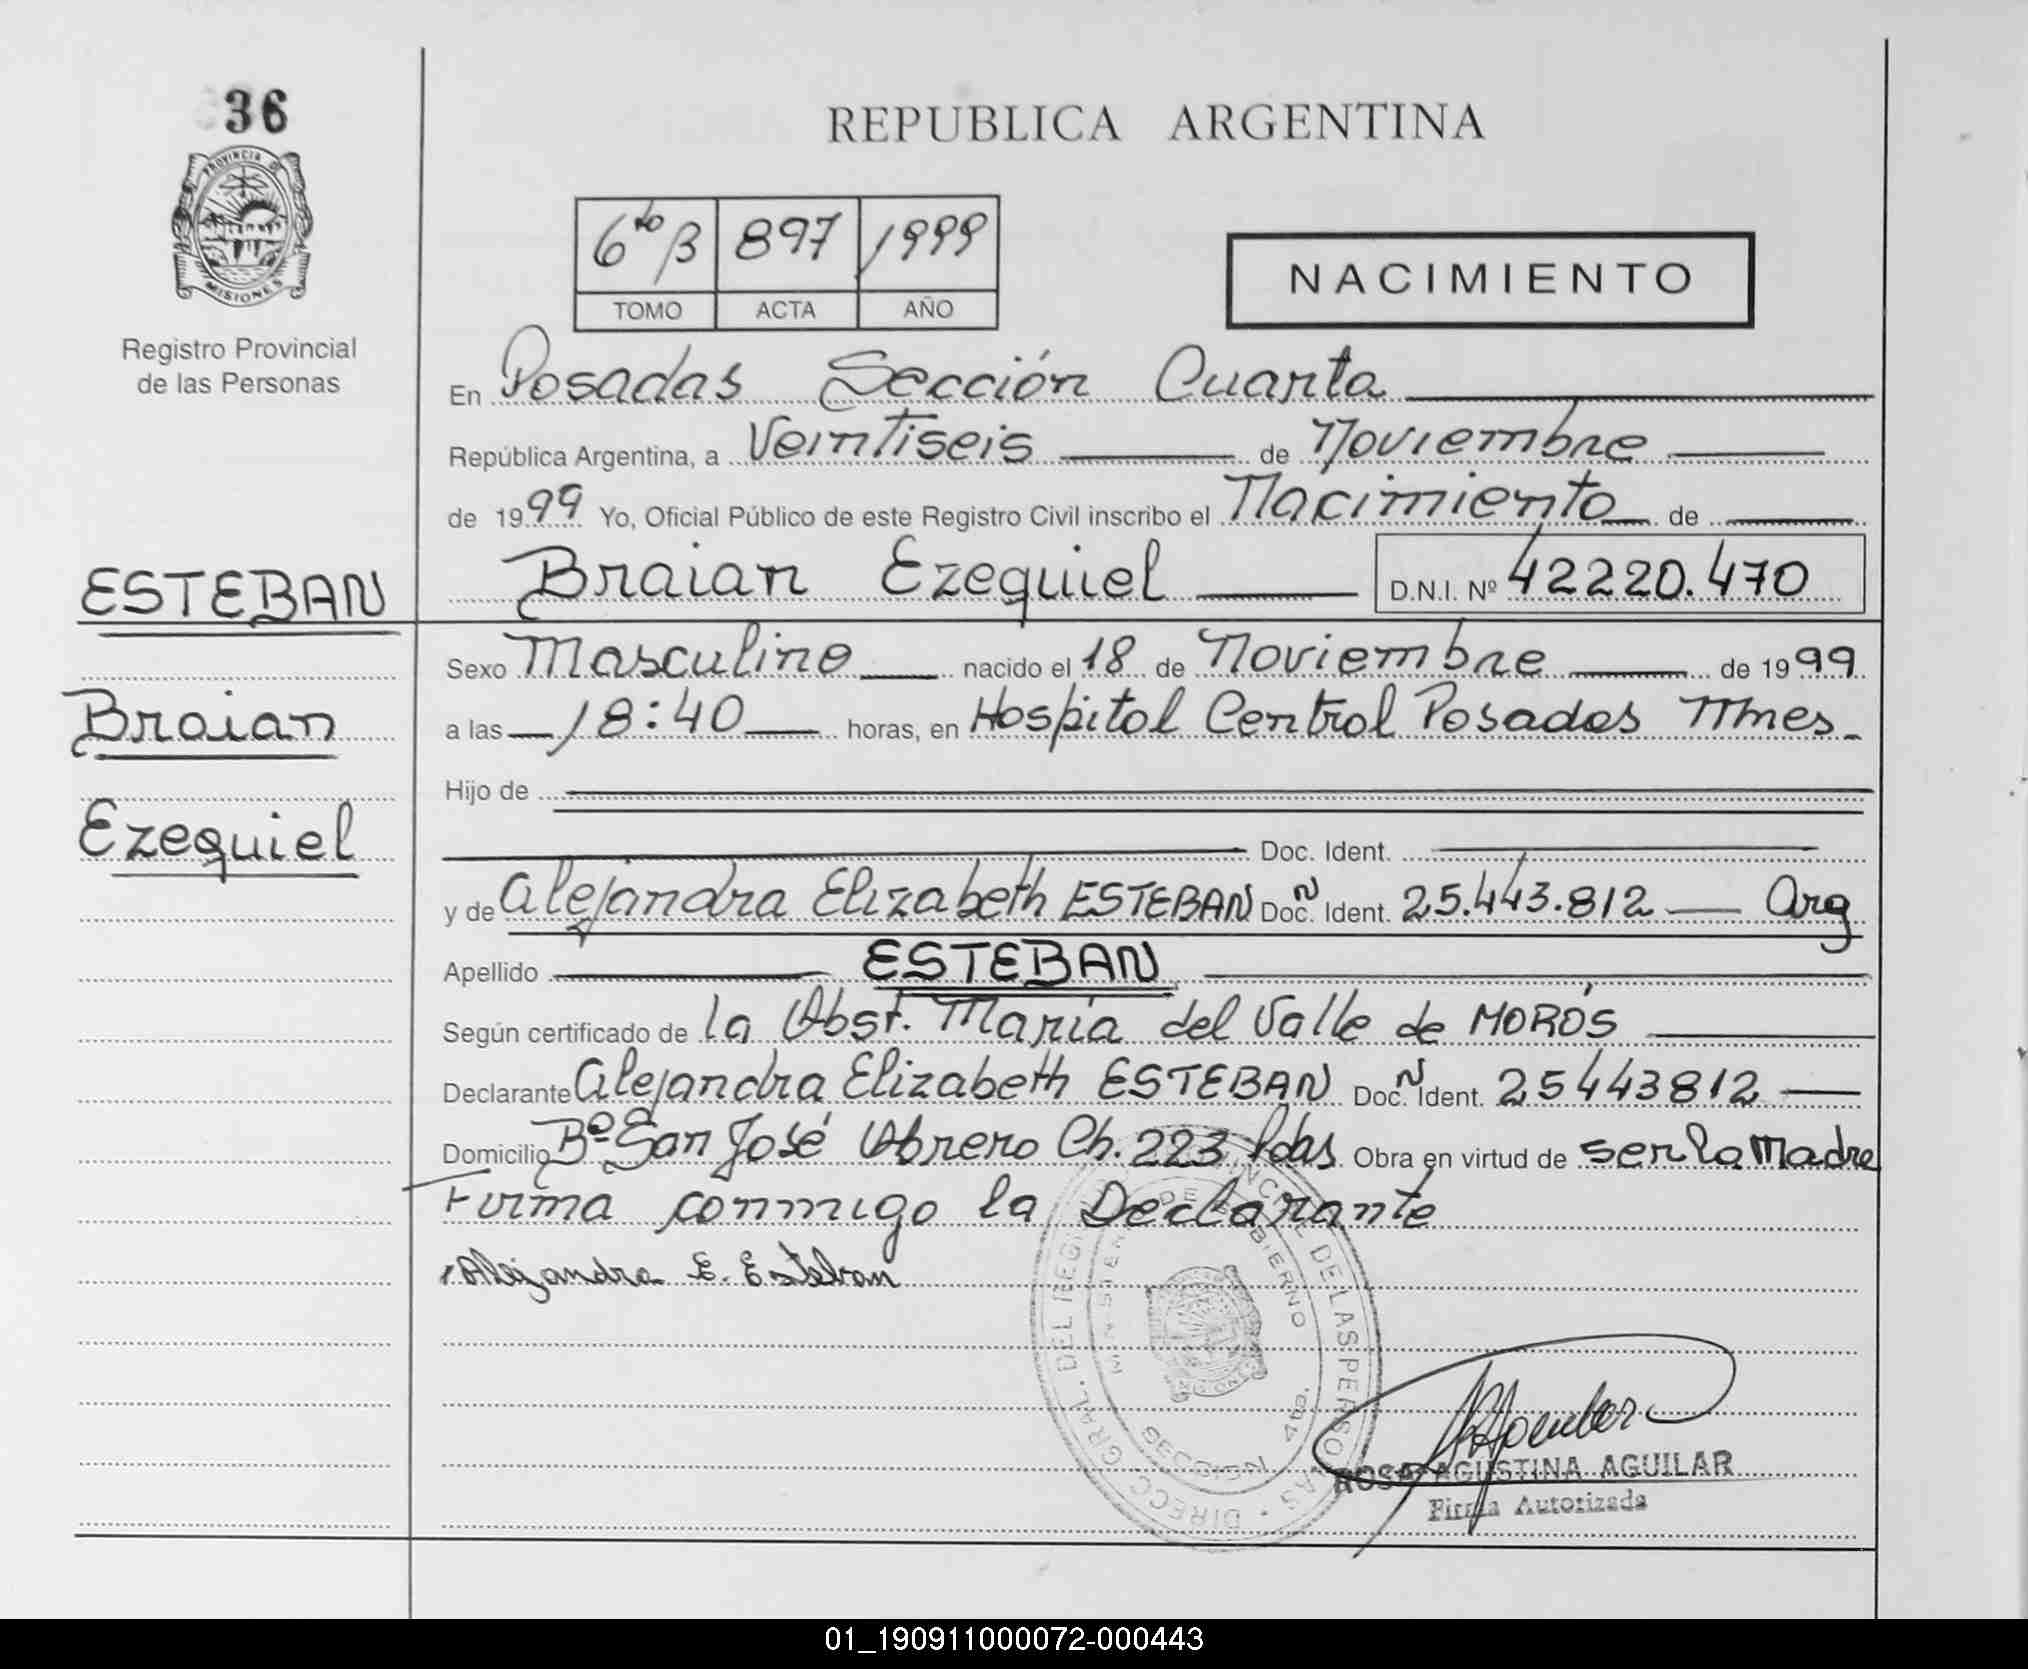 36
PROVINCIA D
MISIONES
Registro Provincial
de las Personas
ESTEBAN
Braian
Ezequiel
REPUBLICA ARGENTINA
6to/B 897 1999
TOMO ACTA AÑO
NACIMIENTO
En Posadas Sección Cuarta
República Argentina, a Veintiseis de Noviembre
de 1999 Yo, Oficial Público de este Registro Civil inscribo el Nacimiento de
Braian Ezequiel D.N.I. Nº 42220.470
Sexo Masculino nacido el 18 de Noviembre de 1999
a las 18:40 horas, en Hospital Central Posadas Mnes
Hijo de
Doc. Ident.
y de Alejandra Elizabeth ESTEBAN Doc. N Ident. 25.443.812 Arg
Apellido ESTEBAN
Según certificado de la Obst. María del Valle de MORÓS
Declarante Alejandra Elizabeth ESTEBAN Doc. N Ident. 25443812
Domicilio Bº San José Obrero Ch. 223 Pdas Obra en virtud de ser la Madre
Firma conmigo la Declarante
Alejandra E. Esteban
MINISTERIO DE GOBIERNO
SECCION 4ta.
ROSA AGUSTINA AGUILAR
Firma Autorizada
01_190911000072-000443